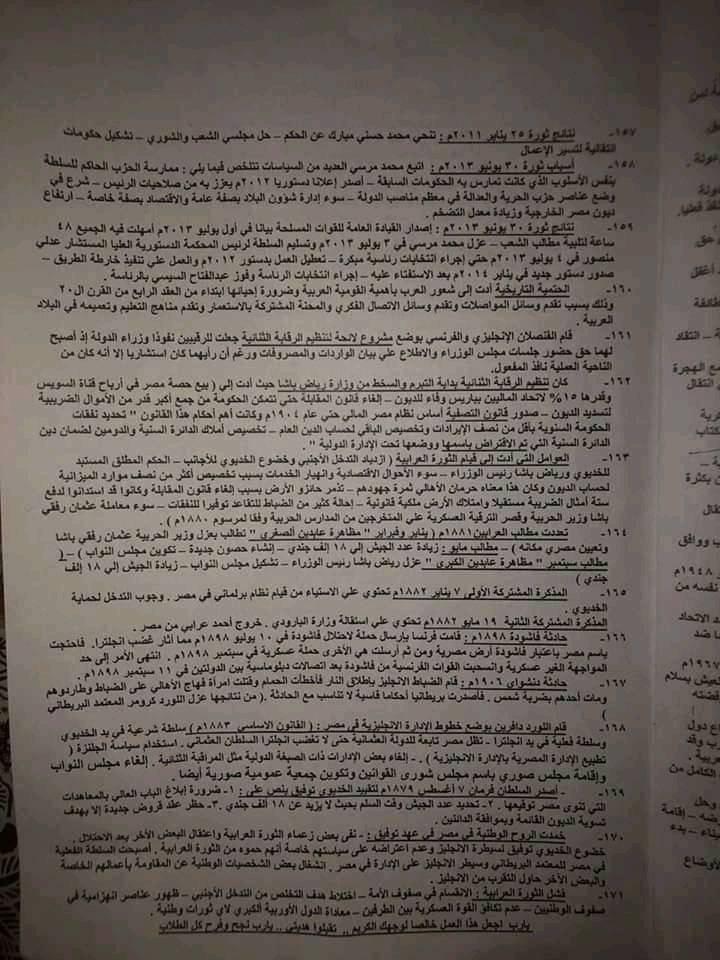 ١٥٧- نتائج ثورة ٢٥ يناير ٢٠١١م : تنحي محمد حسني مبارك عن الحكم – حل مجلسي الشعب والشوري – تشكيل حكومات
انتقالية لتسير الإعمال
١٥٨- أسباب ثورة ٣٠ يونيو ٢٠١٣م : اتبع محمد مرسي العديد من السياسات تتلخص فيما يلي : ممارسة الحزب الحاكم للسلطة
بنفس الأسلوب الذي كانت تمارس به الحكومات السابقة – أصدر إعلانا دستوريا ٢٠١٢م يعزز به من صلاحيات الرئيس – شرع في
وضع عناصر حزب الحرية والعدالة في معظم مناصب الدولة – سوء إدارة شؤون البلاد بصفة عامة والاقتصاد بصفة خاصة – ارتفاع
ديون مصر الخارجية وزيادة معدل التضخم .
١٥٩- نتائج ثورة ٣٠ يونيو ٢٠١٣م : إصدار القيادة العامة للقوات المسلحة بيانا في أول يوليو ٢٠١٣م أمهلت فيه الجميع ٤٨
ساعة لتلبية مطالب الشعب – عزل محمد مرسي في ٣ يوليو ٢٠١٣م وتسليم السلطة لرئيس المحكمة الدستورية العليا المستشار عدلي
منصور في ٤ يوليو ٢٠١٣م حتي إجراء انتخابات رئاسية مبكرة – تعطيل العمل بدستور ٢٠١٢م والعمل علي تنفيذ خارطة الطريق –
صدور دستور جديد في يناير ٢٠١٤م بعد الاستفتاء عليه – إجراء انتخابات الرئاسة وفوز عبدالفتاح السيسي بالرئاسة .
١٦٠- الحتمية التاريخية أدت إلى شعور العرب بأهمية القومية العربية وضرورة إحيائها ابتداء من العقد الرابع من القرن ال٢٠
وذلك بسبب تقدم وسائل المواصلات وتقدم وسائل الاتصال الفكري والمحنة المشتركة بالاستعمار وتقدم مناهج التعليم وتعميمه في البلاد
العربية .
١٦١- قام القنصلان الإنجليزي والفرنسي بوضع مشروع لائحة لتنظيم الرقابة الثنائية جعلت للرقيبين نفوذا وزراء الدولة إذ أصبح
لهما حق حضور جلسات مجلس الوزراء والاطلاع علي بيان الواردات والمصروفات ورغم أن رأيهما كان استشاريا إلا أنه كان من
الناحية العملية نافذ المفعول.
١٦٢- كان تنظيم الرقابة الثنائية بداية التبرم والسخط من وزارة رياض باشا حيث أدت إلي ( بيع حصة مصر في أرباح قناة السويس
وقدرها ١٥% لاتحاد الماليين بباريس وفاء للديون – إلغاء قانون المقابلة حتي تتمكن الحكومة من جمع أكبر قدر من الأموال الضريبية
لتسديد الديون – صدور قانون التصفية أساس نظام مصر المالي حتي عام ١٩٠٤م وكانت أهم أحكام هذا القانون " تحديد نفقات
الحكومة السنوية بأقل من نصف الإيرادات وتخصيص الباقي لحساب الدين العام – تخصيص أملاك الدائرة السنية والدومين لضمان دين
الدائرة السنية التي تم الاقتراض باسمها ووضعها تحت الإدارة الدولية " .
١٦٣- العوامل التي أدت إلي قيام الثورة العرابية ( ازدياد التدخل الأجنبي وخضوع الخديوي للأجانب – الحكم المطلق المستبد
للخديوي ورياض باشا رئيس الوزراء – سوء الأحوال الاقتصادية وانهيار الخدمات بسبب تخصيص أكثر من نصف موارد الميزانية
لحساب الديون وكان هذا معناه حرمان الأهالي ثمرة جهودهم – تذمر حائزو الأرض بسبب إلغاء قانون المقابلة وكانوا قد استدانوا لدفع
ستة أمثال الضريبة مستقبلا وامتلاك الأرض ملكية قانونية – إحالة كثير من الضباط للتقاعد توفيرا للنفقات – سوء معاملة عثمان رفقي
باشا وزير الحربية وقصر الترقية العسكرية علي المتخرجين من المدارس الحربية وفقا لمرسوم ١٨٨٠م ) .
١٦٤- تعددت مطالب العرابين١٨٨١م ( يناير وفبراير " مظاهرة عابدين الصغرى " تطالب بعزل وزير الحربية عثمان رفقي باشا
وتعيين مصري مكانه ) – مطالب مايو : زيادة عدد الجيش إلي ١٨ ألف جندي – إنشاء حصون جديدة – تكوين مجلس النواب – (
مطالب سبتمبر " مظاهرة عابدين الكبري " عزل رياض باشا رئيس الوزراء – تشكيل مجلس النواب – زيادة الجيش إلي ١٨ ألف
جندي )
١٦٥- المذكرة المشتركة الأولي ٧ يناير ١٨٨٢م تحتوي علي الاستياء من قيام نظام برلماني في مصر . وجوب التدخل لحماية
الخديوي .
المذكرة المشتركة الثانية ١٩ مايو ١٨٨٢م تحتوي علي استقالة وزارة البارودي . خروج أحمد عرابي من مصر .
١٦٦- حادثة فاشودة ١٨٩٨م : قامت فرنسا بإرسال حملة لاحتلال فاشودة في ١٠ يوليو ١٨٩٨م مما أثار غضب انجلترا. فاحتجت
باسم مصر باعتبار فاشودة أرض مصرية ومن ثم أرسلت هي الأخرى حملة عسكرية في سبتمبر ١٨٩٨م . انتهى الأمر إلى حد
المواجهة الغير عسكرية وانسحبت القوات الفرنسية من فاشودة بعد اتصالات دبلوماسية بين الدولتين في ١١ سبتمبر ١٨٩٨م .
١٦٧- حادثة دنشواي ١٩٠٦م : قام الضباط الانجليز بإطلاق النار فأخطأت الحمام وقتلت امرأة فهاج الأهالي على الضباط وطاردوهم
ومات أحدهم بضربة شمس . فأصدرت بريطانيا أحكاما قاسية لا تتناسب مع الحادثة .( من نتائجها عزل اللورد كرومر المعتمد البريطاني
)
١٦٨- قام اللورد دافرين بوضع خطوط الإدارة الانجليزية في مصر : ( القانون الاساسي ١٨٨٣م ) سلطة شرعية في يد الخديوي
وسلطة فعلية في يد انجلترا - تظل مصر تابعة للدولة العثمانية حتى لا تغضب انجلترا السلطان العثماني . استخدام سياسة الجلنزة (
تطبيع الإدارة المصرية بالإدارة الانجليزية ) . - إلغاء بعض الإدارات ذات الصبغة الدولية مثل المراقبة الثنائية . إلغاء مجلس النواب
وإقامة مجلس صوري باسم مجلس شورى القوانين وتكوين جمعية عمومية صورية أيضا .
١٦٩- - أصدر السلطان فرمان ٧ أغسطس ١٨٧٩م لتقييد الخديوي توفيق ينص على : ١- ضرورة إبلاغ الباب العالي بالمعاهدات
التي تنوى مصر توقيعها . ٢- تحديد عدد الجيش وقت السلم بحيث لا يزيد عن ١٨ ألف جندي .٣- حظر عقد قروض جديدة إلا بهدف
تسوية الديون القائمة وبموافقة الدائنين .
١٧٠- خمدت الروح الوطنية في مصر في عهد توفيق : - نفى بعض زعماء الثورة العرابية واعتقال البعض الآخر بعد الاحتلال .
خضوع الخديوي توفيق لسيطرة الانجليز وعدم اعتراضه على سياستهم خاصة أنهم حموه من الثورة العرابية . أصبحت السلطة الفعلية
في مصر للمعتمد البريطاني وسيطر الانجليز على الإدارة في مصر . انشغال بعض الشخصيات الوطنية عن المقاومة بأعمالهم الخاصة
والبعض الآخر حاول التقرب من الانجليز .
١٧١- فشل الثورة العرابية : الانقسام في صفوف الأمة – اختلاط هدف التخلص من التدخل الأجنبي – ظهور عناصر انهزامية في
صفوف الوطنيين – عدم تكافؤ القوة العسكرية بين الطرفين - معاداة الدول الأوربية الكبري لاي ثورات وطنية .
يارب اجعل هذا العمل خالصا لوجهك الكريم ,, تقبلوا هديتي .. يارب نجح وفرح كل الطلاب